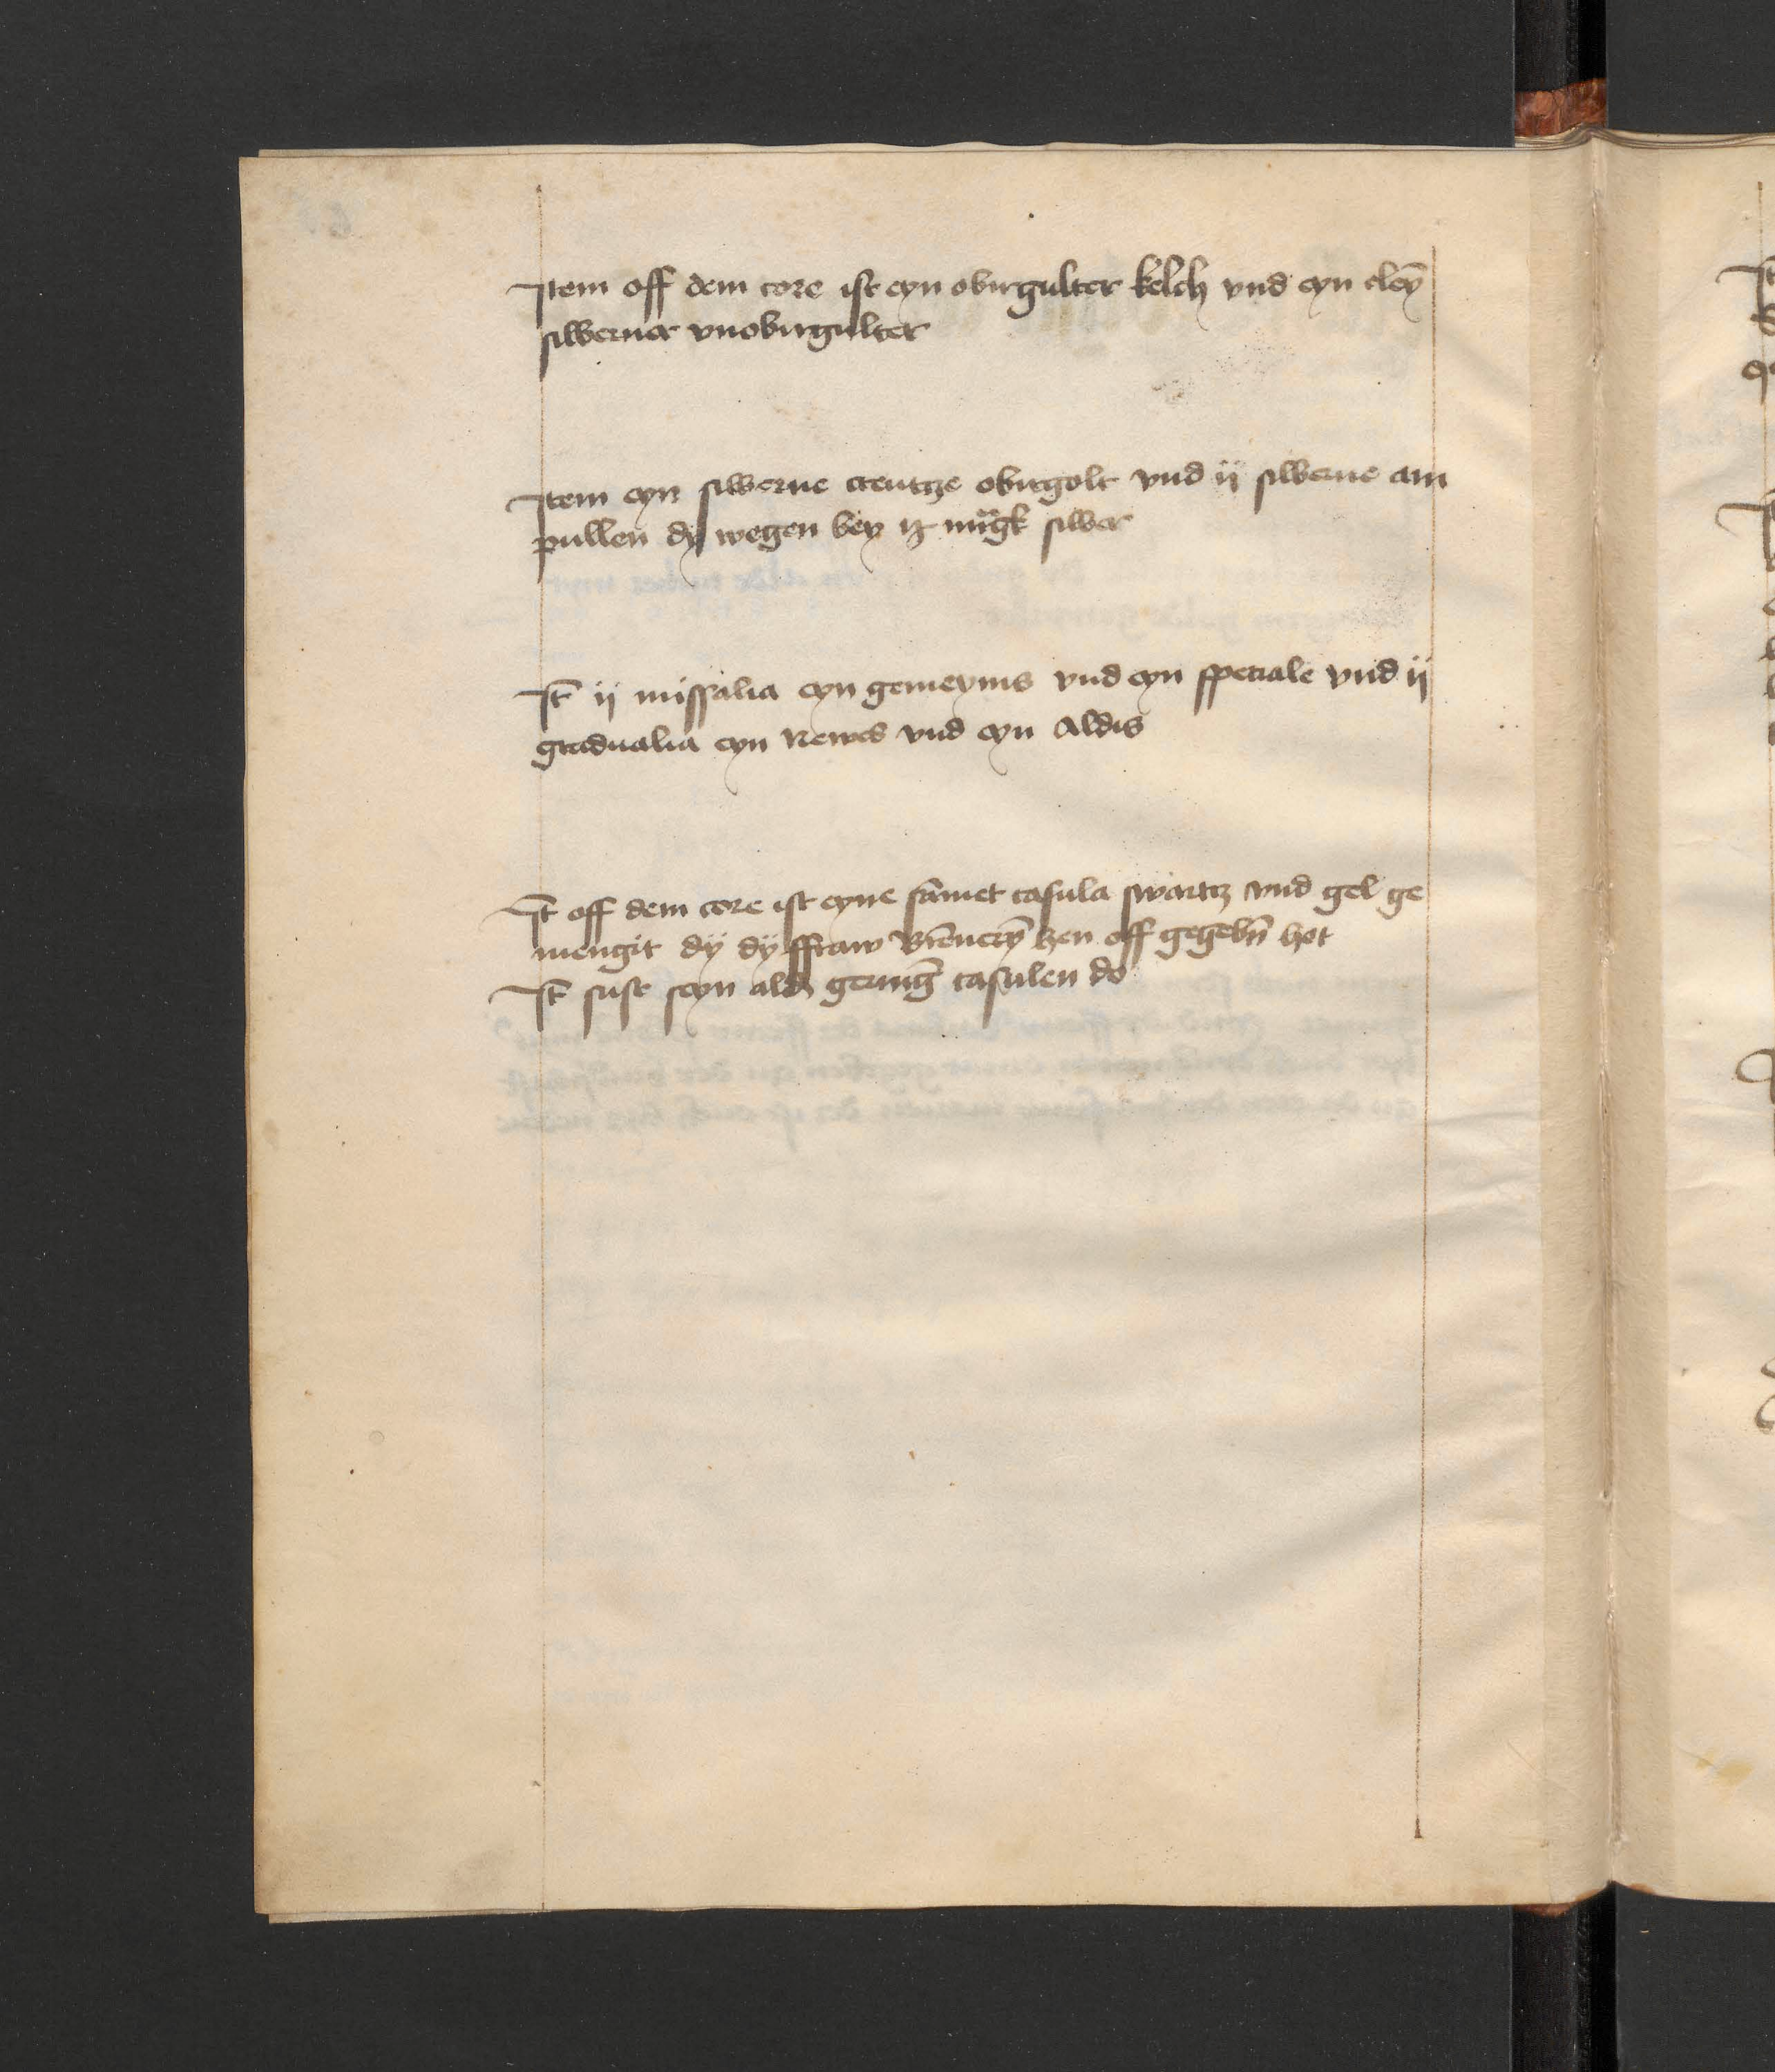 Item off dem core ist eyn obirgulter kelch vnd eyn cleyn̄
silberner vnobirgulter
Item eyn silberne creutcze obirgolt vnd ij silberne am
pullen dy wegen bey silber
It̄ ij missalia eyn gemeynis vnd eyn speciale vnd ij
gradualia eyn Newes vnd eyn Aldis
It̄ off dem core ist eyne sāmet casula swartcz vnd gel ge
mengit dÿ dÿ ffraw off gegebn̄ hot
It̄ sust seyn alde gerinḡ casulen do